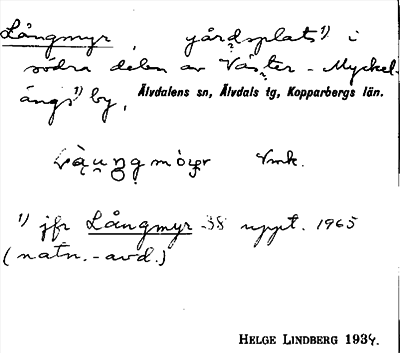 Långmyr, gårdsplats¹⁾ i
södra delen av Väster-Myckel-
ängs¹⁾ by, Älvdalens sn, Älvdals tg, Kopparbergs län.
Vmk.
¹⁾ jfr Långmyr 38 uppt. 1965
(natn.-avd.)
HELGE LINDBERG 1934.